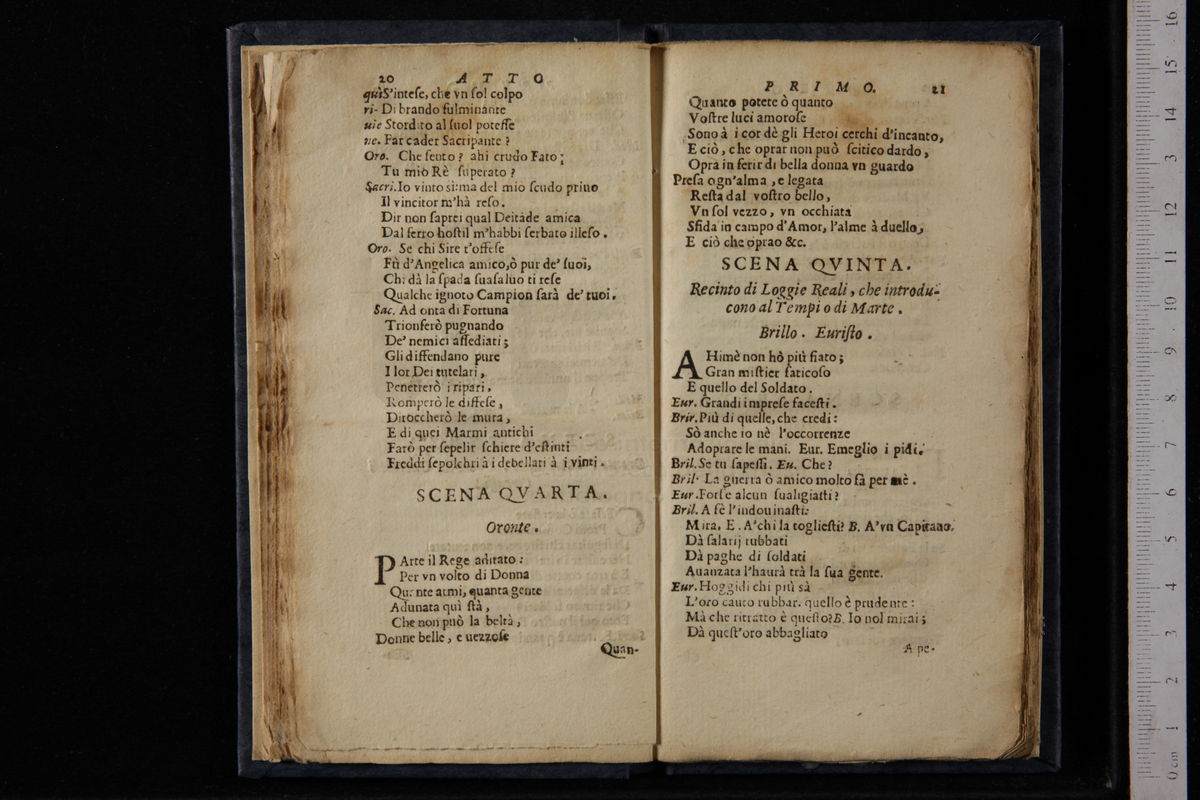 20 ATTO
qui S'intese, che vn sol colpo
ri- Di brando fulminante
uie Stordito al suol potesse
ne. Far cader Sacripante ?
Oro. Che sento ? ahi crudo Fato ;
Tu mio Rè superato ?
Sacri. Io vinto sì: ma del mio scudo priuo
Il vincitor m'hà reso.
Dir non saprei qual Deitàde amica
Dal ferro hostil m'habbi serbato illeso .
Oro. Se chi Sire t'offese
Fù d'Angelica amico, ò pur de' suoi,
Chi dà la spada sua saluo ti rese
Qualche ignoto Campion sarà de' tuoi.
Sac. Ad onta di Fortuna
Trionferò pugnando
De' nemici assediati ;
Gli diffendano pure
I lor Dei tutelari ,
Penetrerò i ripari ,
Romperò le diffese ,
Diroccherò le mura ,
E di quei Marmi antichi
Farò per sepelir schiere d'estinti
Freddi sepolchri à i debellati à i vinti .
SCENA QVARTA.
Oronte .
PArte il Rege adirato :
Per vn volto di Donna
Quante armi, quanta gente
Adunata quì stà ,
Che non può la beltà ,
Donne belle , e uezzose
Quan-
PRIMO. 21
Quanto potete ò quanto
Vostre luci amorose
Sono à i cor dè gli Heroi cerchi d'incanto,
E ciò , che oprar non può scitico dardo ,
Opra in ferir di bella donna vn guardo
Presa ogn'alma , e legata
Resta dal vostro bello ,
Vn sol vezzo , vn occhiata
Sfida in campo d'Amor, l'alme à duello,
E ciò che oprao &c.
SCENA QVINTA.
Recinto di Loggie Reali , che introdu-
cono al Tempio di Marte .
Brillo . Euristo .
AHimè non hò più fiato ;
Gran mistier faticoso
E quello del Soldato .
Eur. Grandi imprese facesti .
Brir. Più di quelle, che credi :
Sò anche io nè l'occorrenze
Adoprare le mani. Eur. Emeglio i pidi.
Bril. Se tu sapessi . Eu. Che ?
Bril. La guerra ò amico molto fà per mè .
Eur. Forse alcun sualigiasti ?
Bril. A fè l'indouinasti:
Mira. E. A'chi la togliesti? B. A'vn Capitano.
Dà salarij rubbati
Dà paghe di soldati
Auanzata l'haurà trà la sua gente.
Eur. Hoggidi chi più sà
L'oro cauto rubbar. quello è prudente :
Mà che ritratto è questo? B. Io nol mirai ;
Dà quest'oro abbagliato
A pe-